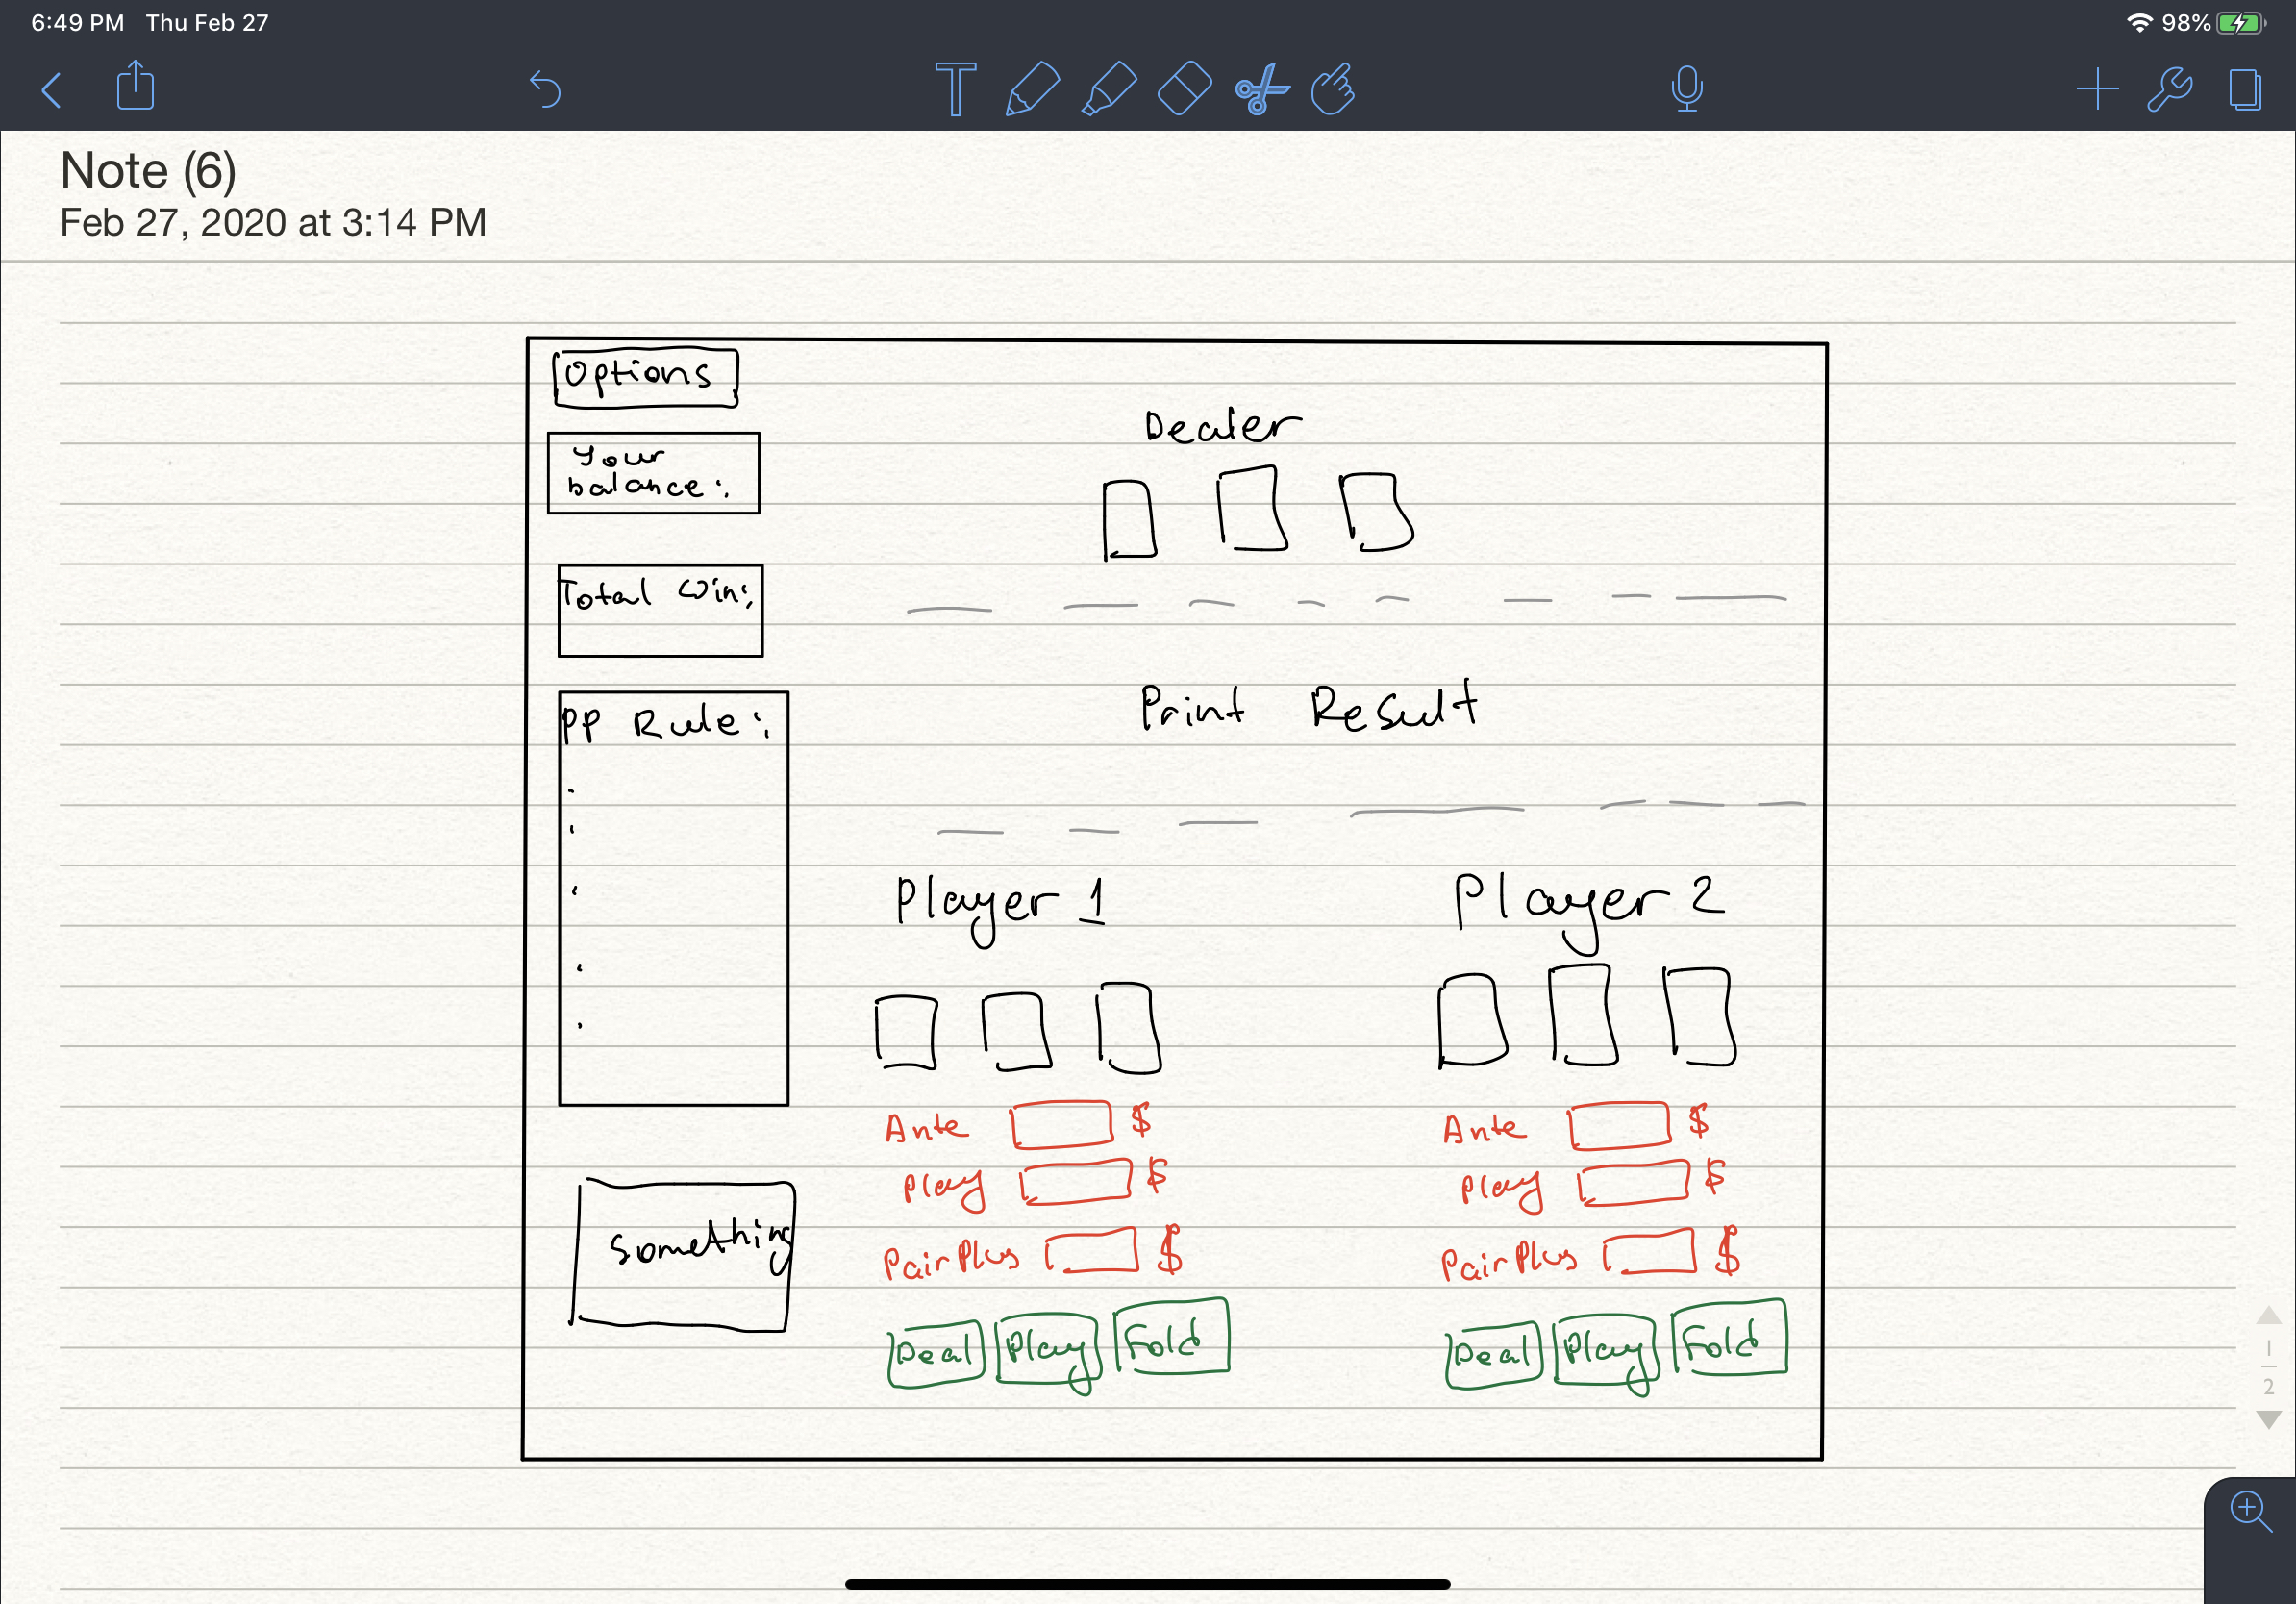 6:49 PM Thu Feb 27
98%
Note (6)
Feb 27, 2020 at 3:14 PM
Options
Your
balance:
Total Win:
PP Rule:
Something
Dealer
Print Result
Player 1
Ante $
Play $
PairPlus $
Deal Play Fold
Player 2
Ante $
Play $
PairPlus $
Deal Play Fold
1
2